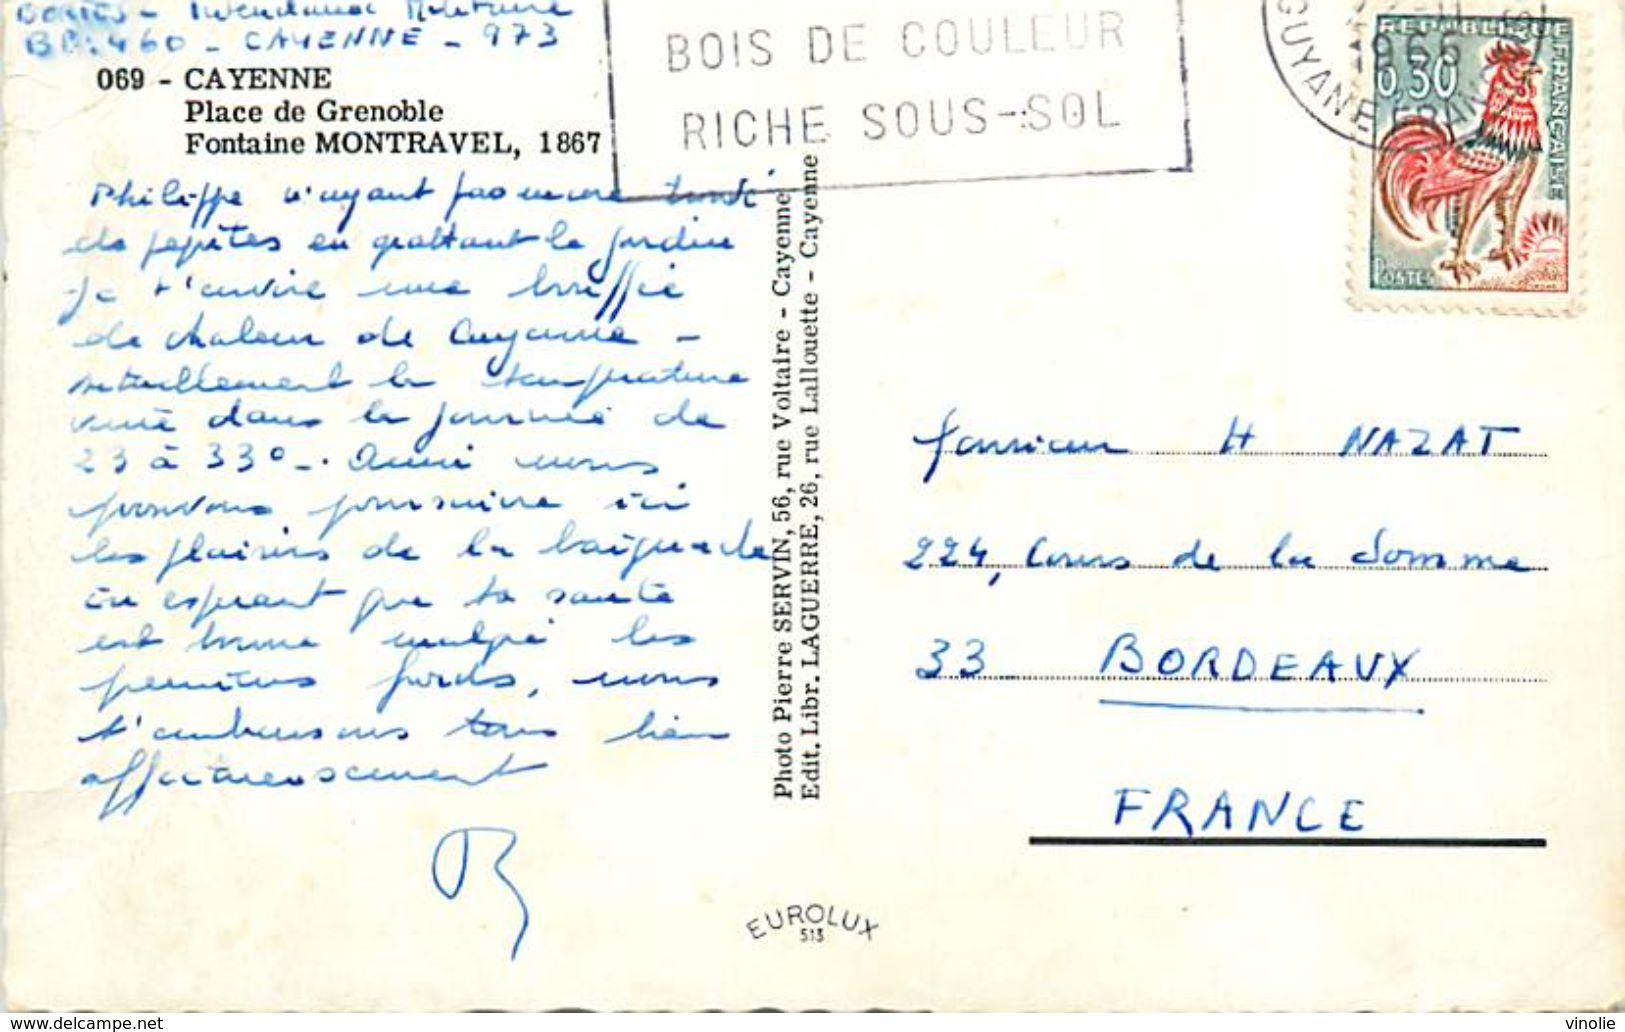 Bories - Intendance Militaire
BP. 460 - CAYENNE - 973
069 - CAYENNE
Place de Grenoble
Fontaine MONTRAVEL, 1867
BOIS DE COULEUR
RICHE SOUS-SOL
GUYANE FRANÇAISE
1966
REPUBLIQUE FRANÇAISE
0,30
POSTES
Philippe n'ayant pas encore trouvé
de pepites en grattant le jardin
je t'envoie une bouffée
de chaleur de Cayenne -
actuellement la température
varie dans la journée de
23 à 33° -. Aussi nous
pouvons poursuivre ici
les plaisirs de la baignade
En esperant que ta santé
est bonne malgré les
premiers froids, nous
t'embrassons tous bien
affectueusement
Photo Pierre SERVIN, 56, rue Voltaire - Cayenne
Edit. Libr. LAGUERRE, 26, rue Lallouette - Cayenne
Monsieur H NAZAT
224, Cours de la Somme
33 BORDEAUX
FRANCE
EUROLUX
513
https://www.delcampe.net
vinolie